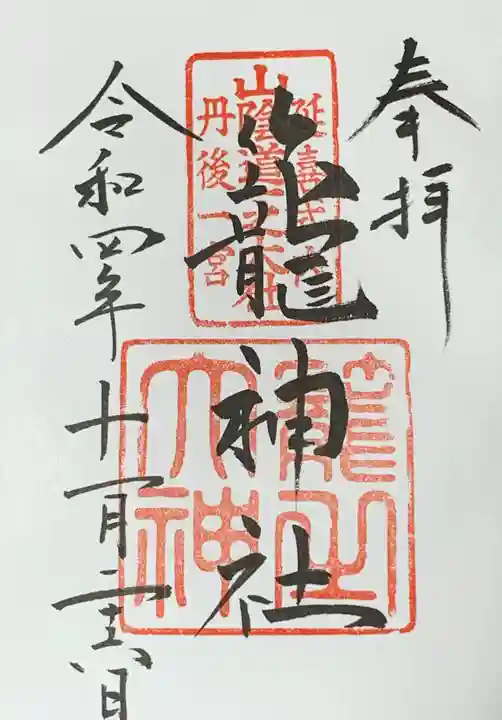 奉拝
延喜式内
山陰道一之大社
丹後一宮
籠神社
籠之
大神
令和四年十一月二十六日